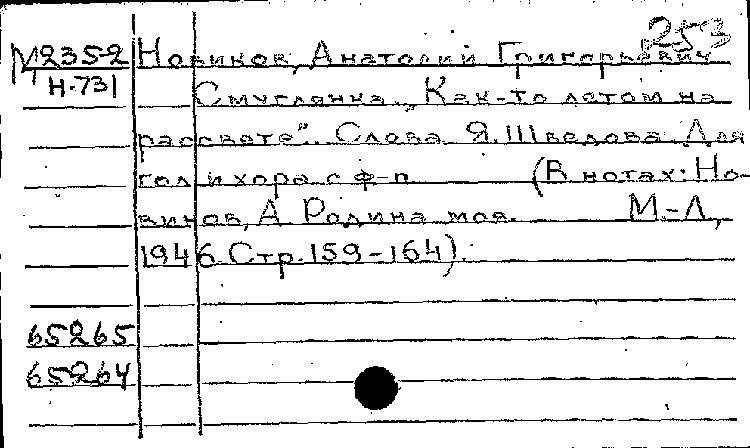 253
М2352 Новиков, Анатолий Григорьевич
Н-731 Смуглянка. „Как-то летом на
рассвете". Слова Я. Шведова. Для
гол. и хора с ф-п (В нотах: Но-
виков, А. Родина моя. М-Л,
1946 Стр. 159-164).
65265
65264